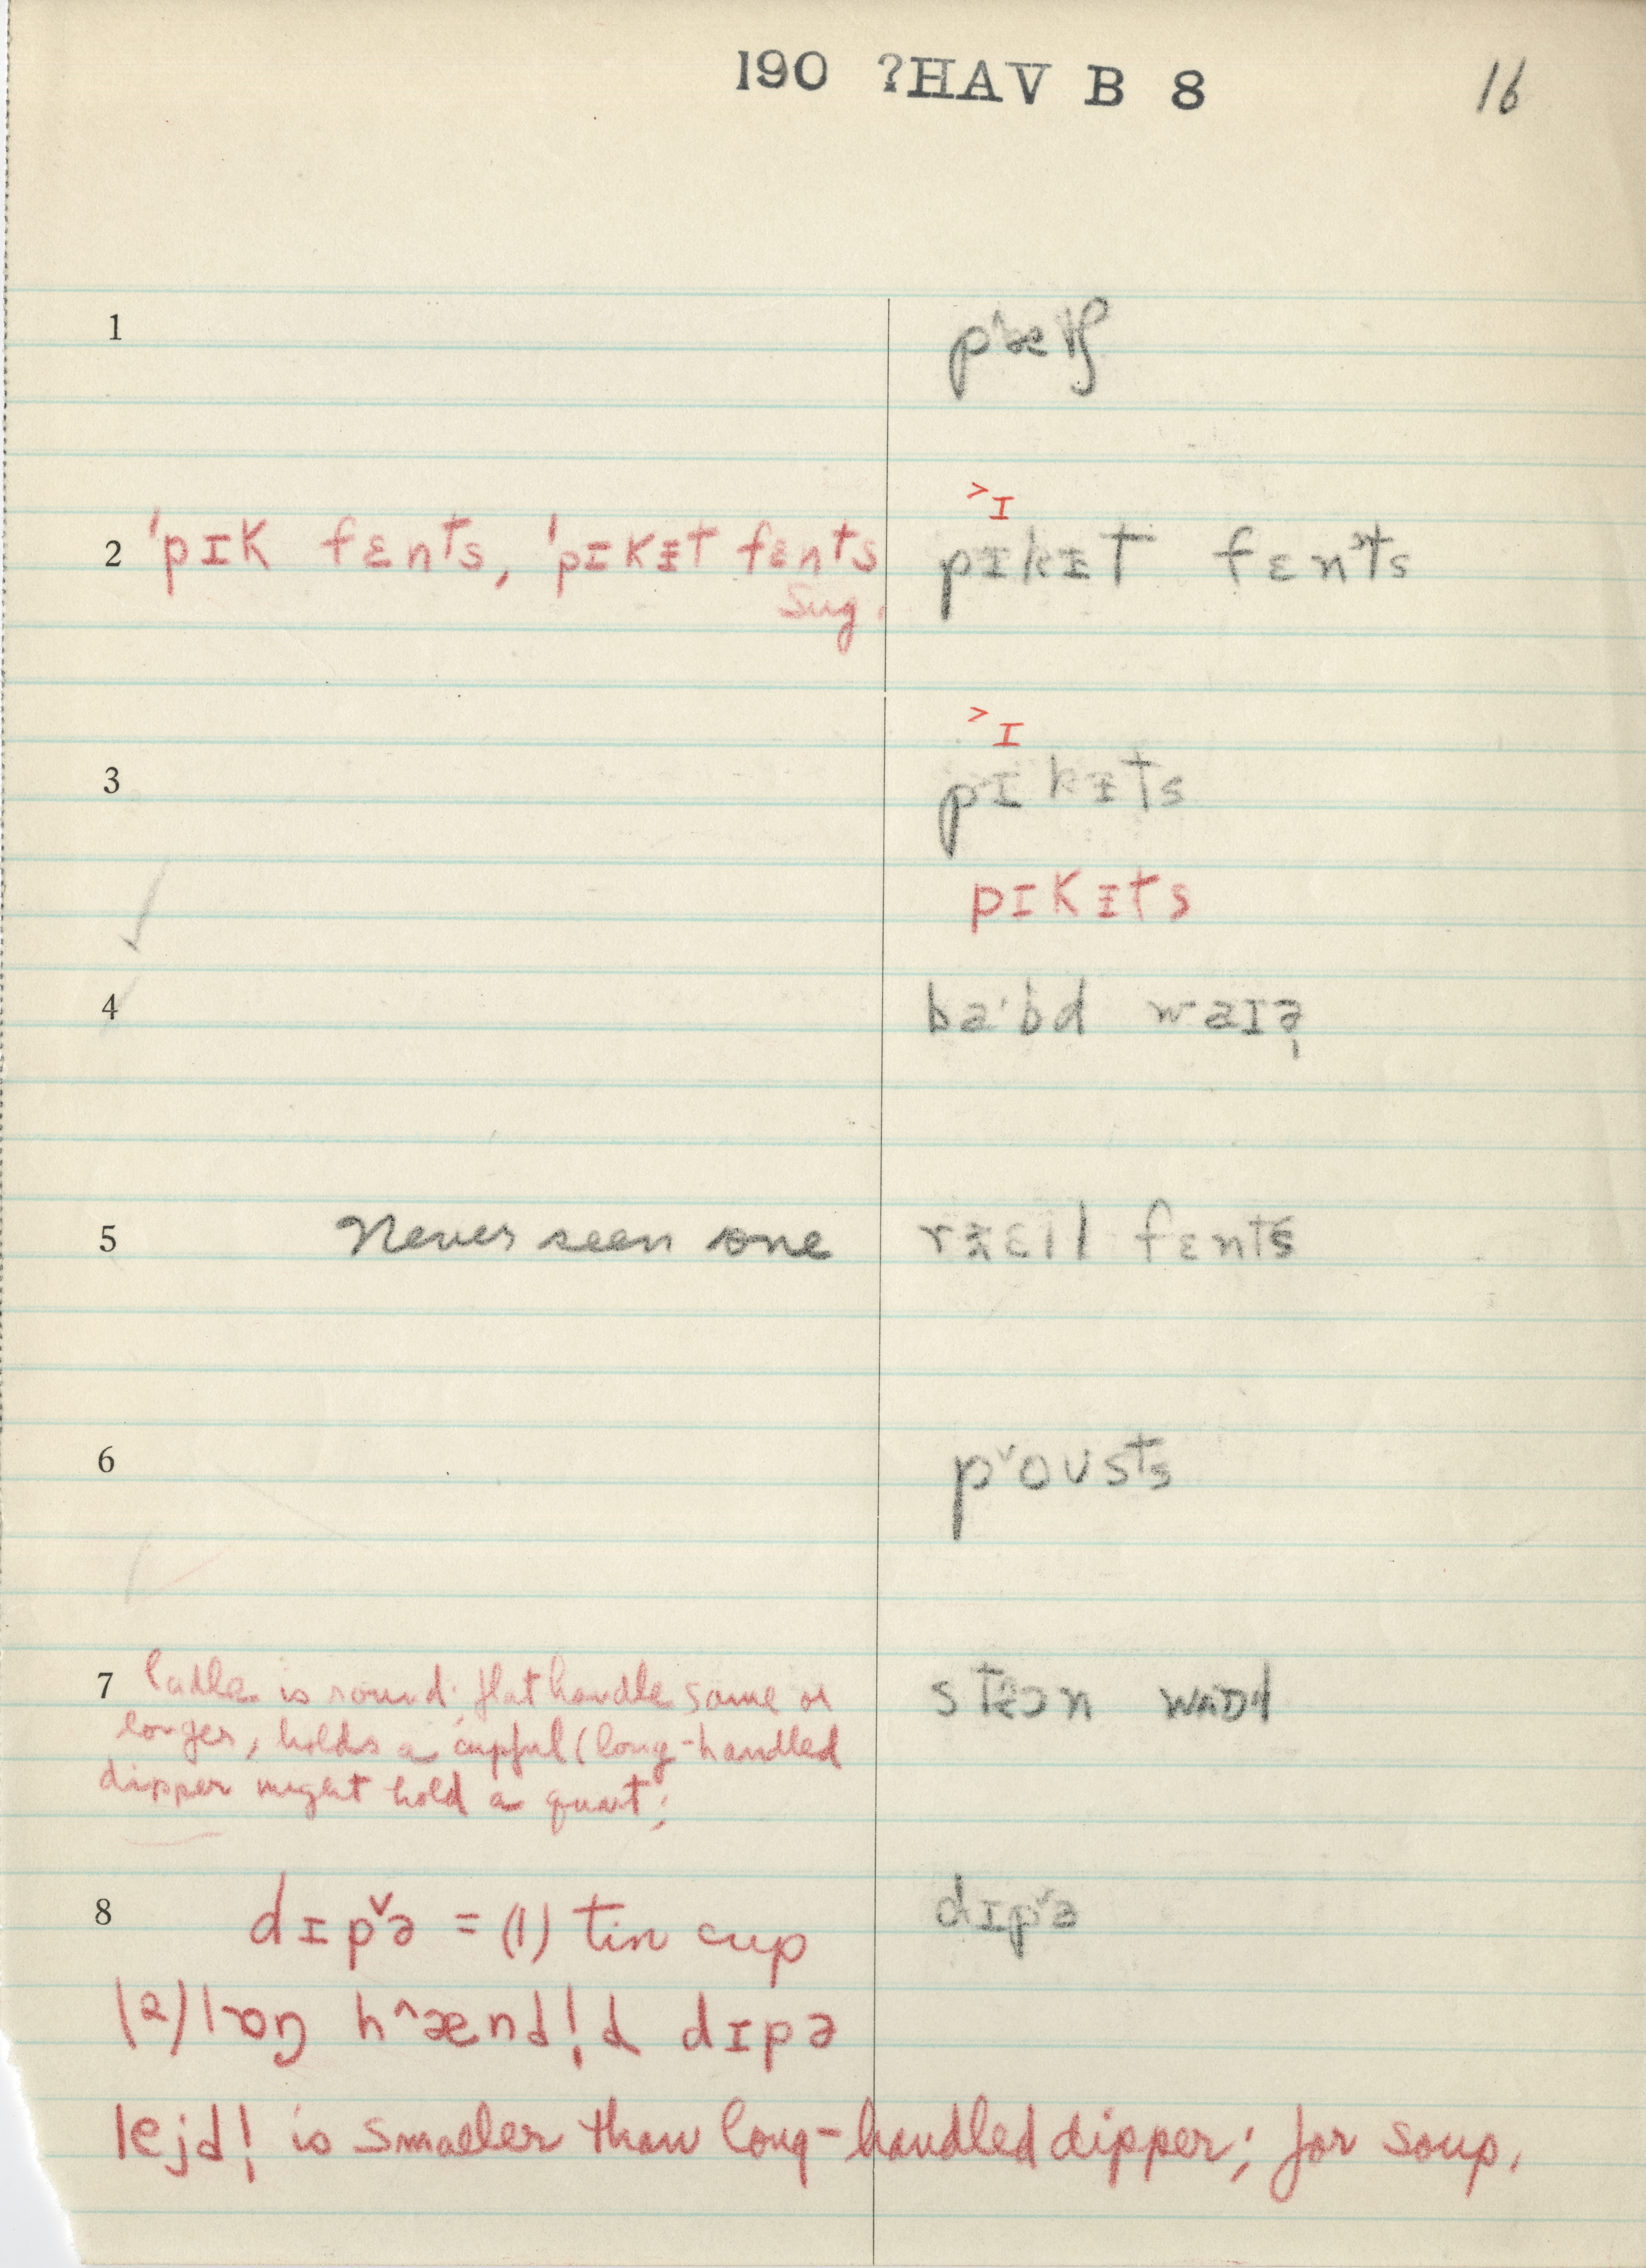 190 ?HAV B 8 16
1
2 'pɪk fɛnts, 'pɪkɪ̵t fɛnts pɪkɪ̵t fɛnts
Sug.
˃ɪ
3 pɪkɪ̵ts
pɪkɪ̵ts
4 ba·bd waɪə̣
5 Never seen one fɛnts
6 pˇoʊsts
7 Ladle is round; flat handle same or
longer, holds a cupful (long-handled
dipper might hold a quart;
8 dɪpˇə = (1) tin cup dɪpˇə
(2) lɔŋ h^ænd!d dɪpə
lejd! is smaller than long-handled dipper; for soup.